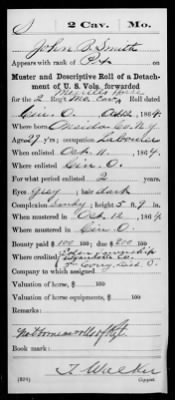 S 2 Cav. Mo.
John B. Smith
Appears with rank of Pvt on
Muster and Descriptive Roll of a Detach-
ment of U. S. Vols. forwarded
Merrill's Horse
for the 2 Reg't Mo. Cav. Roll dated
Cin. O. Oct 12, 1864
Where born Oneida Co. N.Y.
Age 27 y'rs; occupation Laborer
When enlisted Oct. 11, 1864
Where enlisted Cin. O.
For what period enlisted 2 years.
Eyes Grey; hair dark
Complexion Sandy; height 5 ft. 9 in.
When mustered in Oct. 12, 1864
Where mustered in Cin. O.
Bounty paid $100 100; due $200 100
Where credited Township
Co.
Dist. O.
Company to which assigned
Valuation of horse, $ 100
Valuation of horse equipments, $ 100
Remarks:
Book mark:
(334)
T. Walker
Copyist.